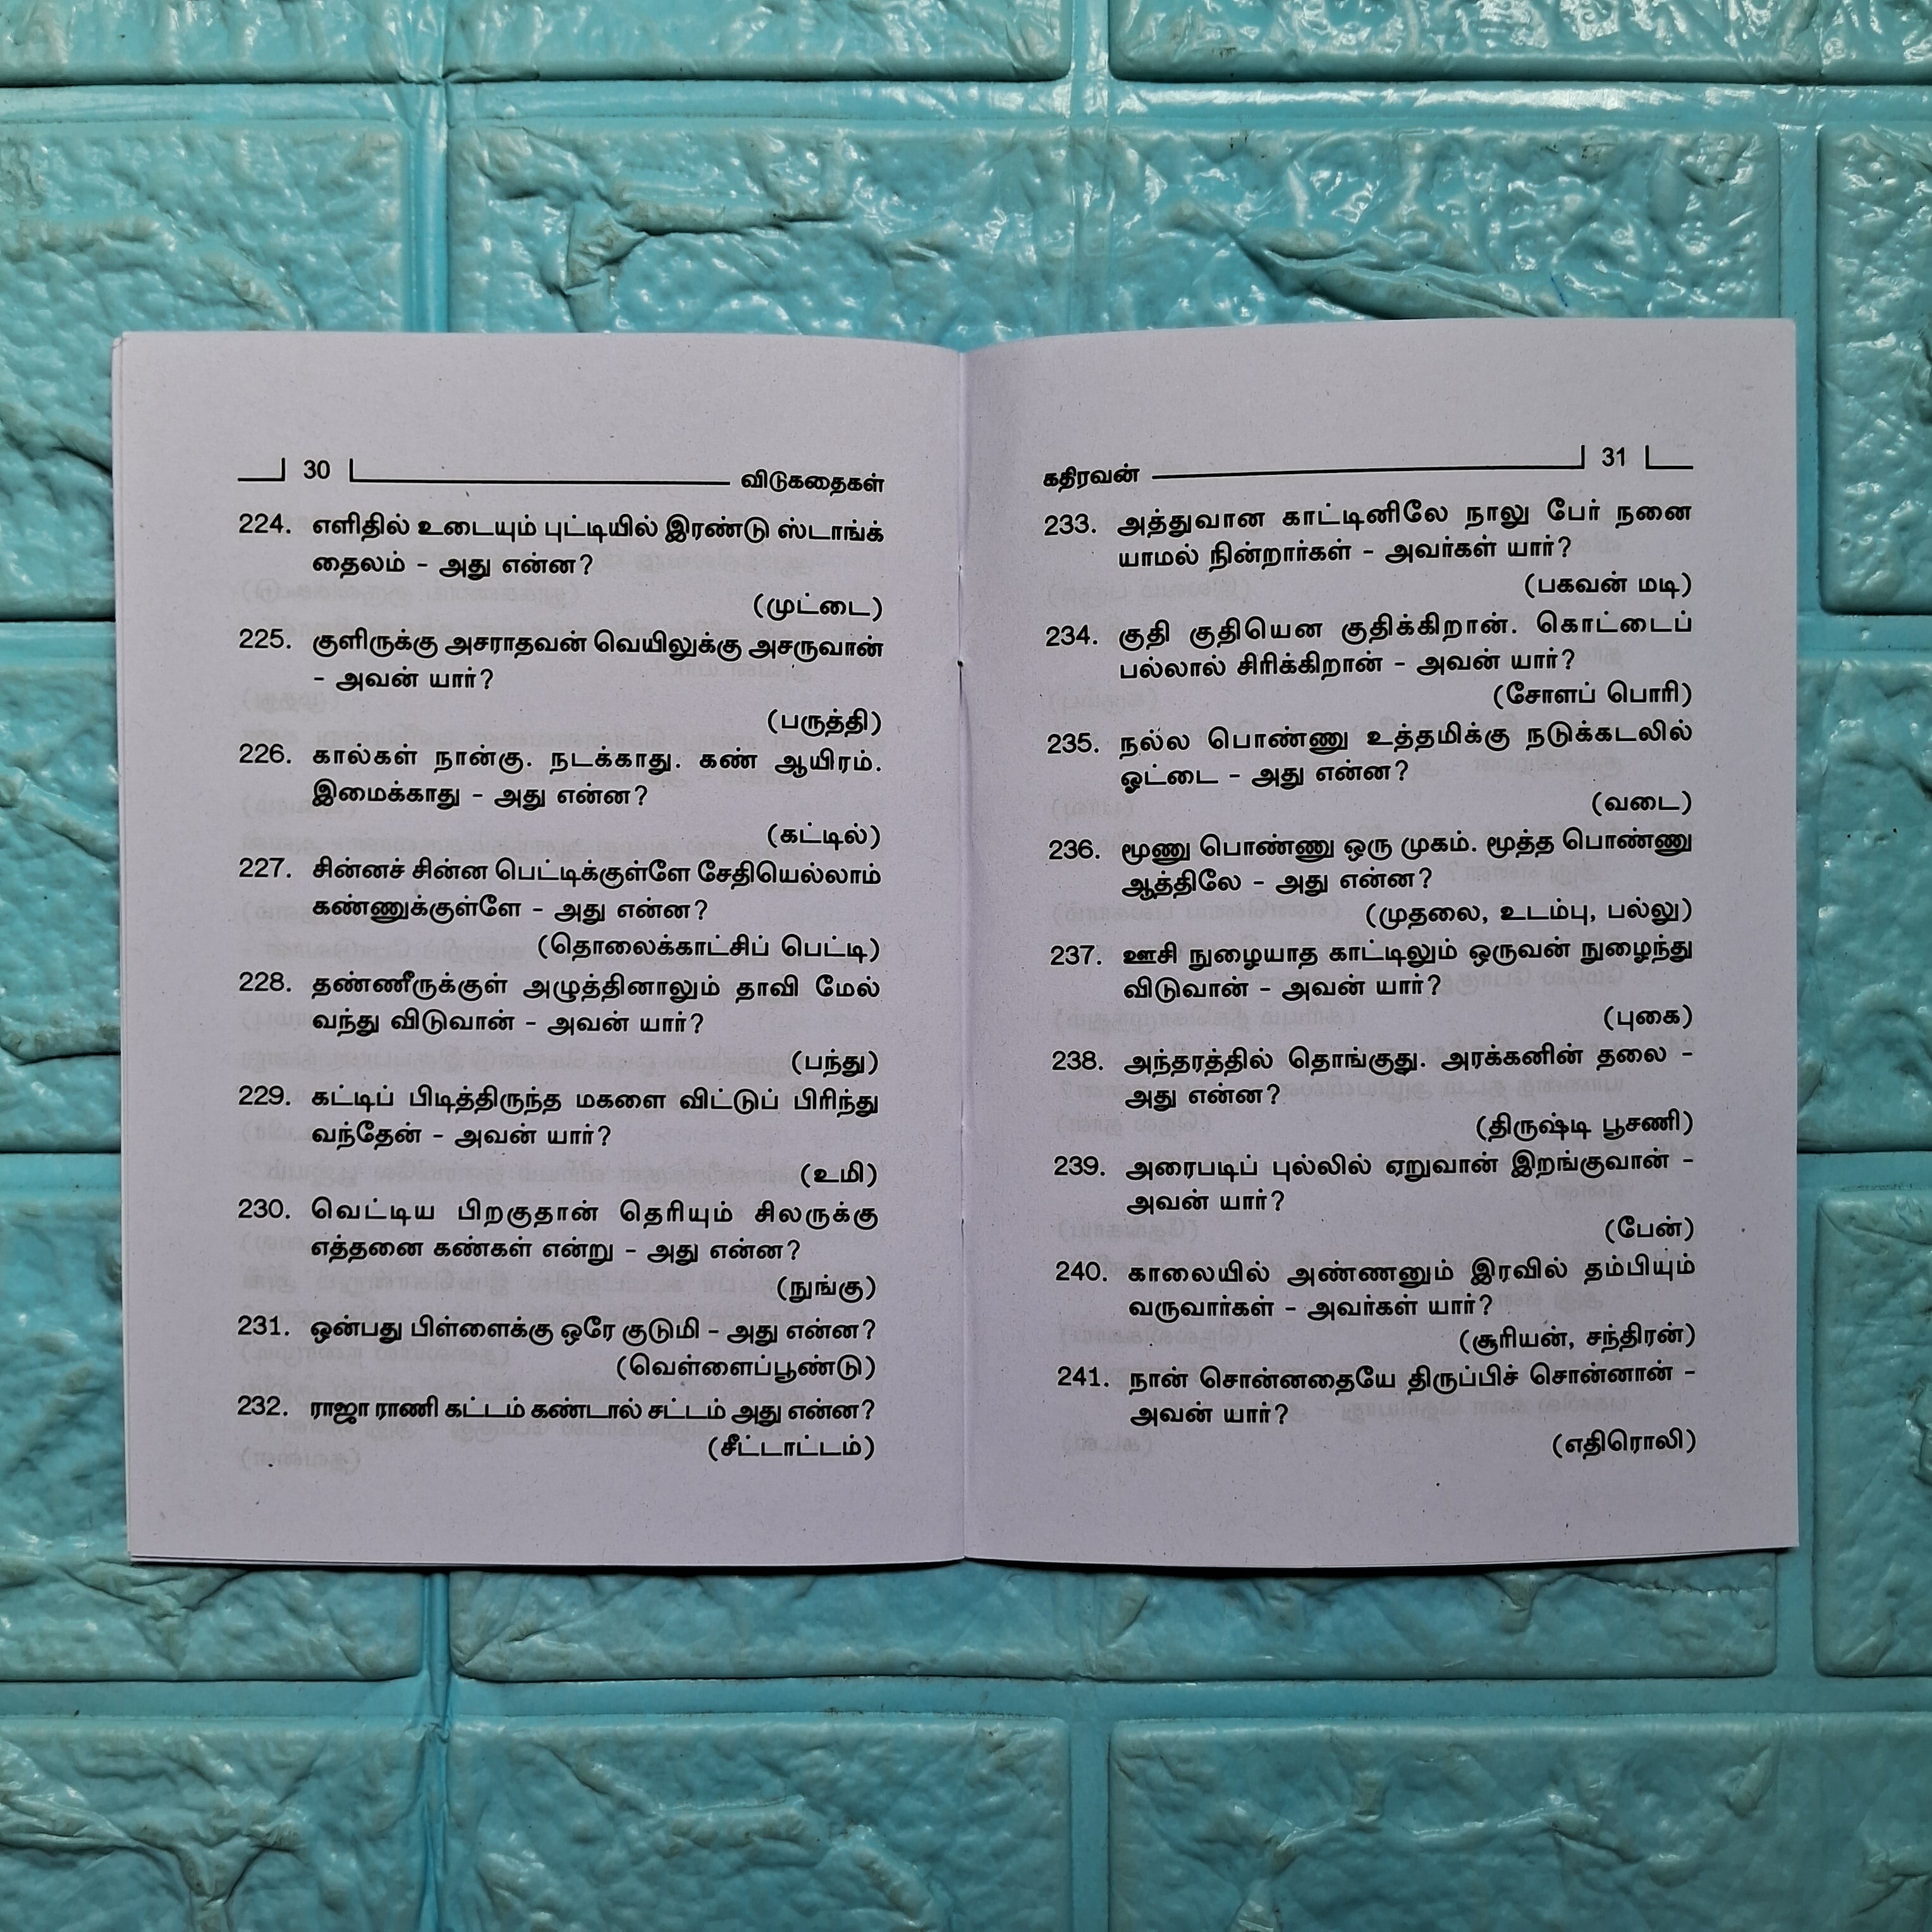 30 விடுகதைகள்
224. எளிதில் உடையும் புட்டியில் இரண்டு ஸ்டாங்க்
தைலம் – அது என்ன?
(முட்டை)
225. குளிருக்கு அசராதவன் வெயிலுக்கு அசருவான்
– அவன் யார்?
(பருத்தி)
226. கால்கள் நான்கு. நடக்காது. கண் ஆயிரம்.
இமைக்காது – அது என்ன?
(கட்டில்)
227. சின்னச் சின்ன பெட்டிக்குள்ளே சேதியெல்லாம்
கண்ணுக்குள்ளே – அது என்ன?
(தொலைக்காட்சிப் பெட்டி)
228. தண்ணீருக்குள் அழுத்தினாலும் தாவி மேல்
வந்து விடுவான் – அவன் யார்?
(பந்து)
229. கட்டிப் பிடித்திருந்த மகளை விட்டுப் பிரிந்து
வந்தேன் – அவன் யார்?
(உமி)
230. வெட்டிய பிறகுதான் தெரியும் சிலருக்கு
எத்தனை கண்கள் என்று – அது என்ன?
(நுங்கு)
231. ஒன்பது பிள்ளைக்கு ஒரே குடுமி – அது என்ன?
(வெள்ளைப்பூண்டு)
232. ராஜா ராணி கட்டம் கண்டால் சட்டம் அது என்ன?
(சீட்டாட்டம்)
கதிரவன் 31
233. அத்துவான காட்டினிலே நாலு பேர் நனை
யாமல் நின்றார்கள் – அவர்கள் யார்?
(பகவன் மடி)
234. குதி குதியென குதிக்கிறான். கொட்டைப்
பல்லால் சிரிக்கிறான் – அவன் யார்?
(சோளப் பொரி)
235. நல்ல பொண்ணு உத்தமிக்கு நடுக்கடலில்
ஓட்டை – அது என்ன?
(வடை)
236. மூணு பொண்ணு ஒரு முகம். மூத்த பொண்ணு
ஆத்திலே – அது என்ன?
(முதலை, உடம்பு, பல்லு)
237. ஊசி நுழையாத காட்டிலும் ஒருவன் நுழைந்து
விடுவான் – அவன் யார்?
(புகை)
238. அந்தரத்தில் தொங்குது. அரக்கனின் தலை –
அது என்ன?
(திருஷ்டி பூசணி)
239. அரைபடிப் புல்லில் ஏறுவான் இறங்குவான் –
அவன் யார்?
(பேன்)
240. காலையில் அண்ணனும் இரவில் தம்பியும்
வருவார்கள் – அவர்கள் யார்?
(சூரியன், சந்திரன்)
241. நான் சொன்னதையே திருப்பிச் சொன்னான் –
அவன் யார்?
(எதிரொலி)